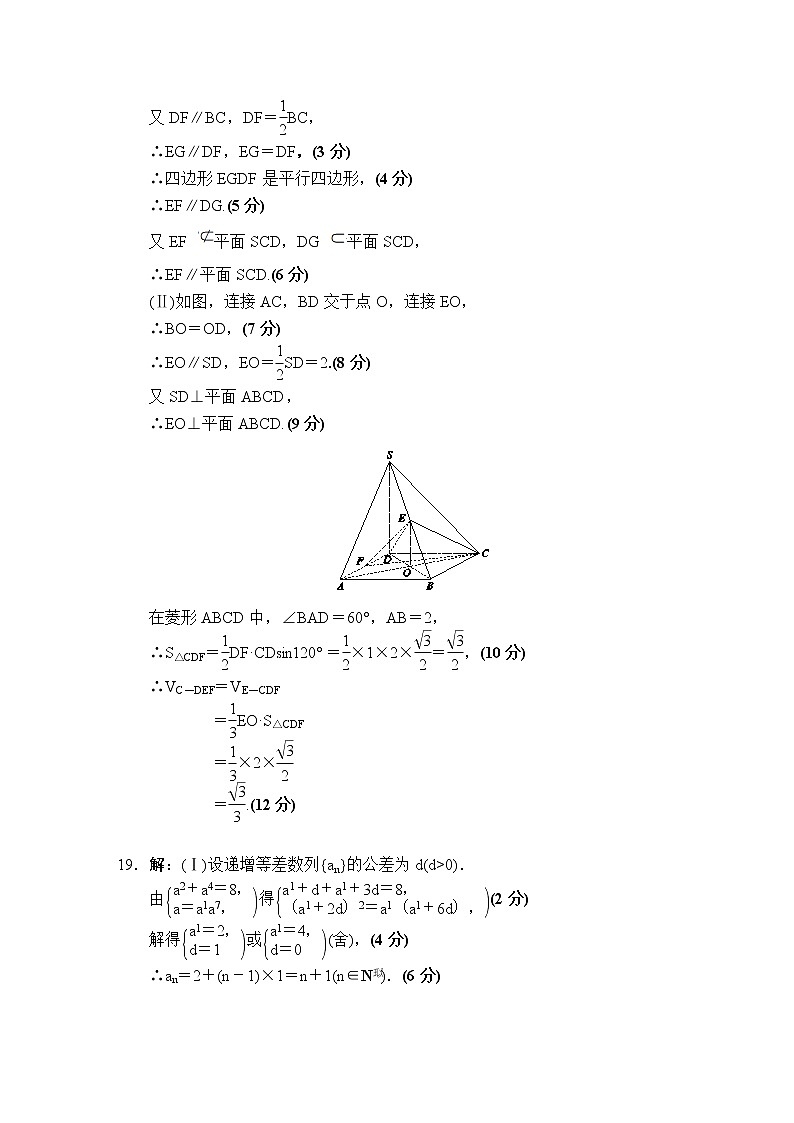 又DF∥BC，DF＝1/2BC，
∴EG∥DF，EG＝DF，(3分)
∴四边形EGDF是平行四边形，(4分)
∴EF∥DG.(5分)
又EF ⊄平面SCD，DG ⊂平面SCD，
∴EF∥平面SCD.(6分)
(Ⅱ)如图，连接AC，BD交于点O，连接EO，
∴BO＝OD，(7分)
∴EO∥SD，EO＝1/2SD＝2.(8分)
又SD⊥平面ABCD，
∴EO⊥平面ABCD.(9分)
S
E
F
D
C
O
A
B
在菱形ABCD中，∠BAD＝60°，AB＝2，
∴S△CDF＝1/2DF·CDsin120°＝1/2×1×2×√3/2＝√3/2，(10分)
∴VC－DEF＝VE－CDF
＝1/3EO·S△CDF
＝1/3×2×√3/2
＝√3/3.(12分)
19．解：(Ⅰ)设递增等差数列{an}的公差为d(d>0)．
由{a2＋a4＝8，a＝a1a7，)得{a1＋d＋a1＋3d＝8，（a1＋2d）2＝a1（a1＋6d），)(2分)
解得{a1＝2，d＝1)或{a1＝4，d＝0)(舍)，(4分)
∴an＝2＋(n－1)×1＝n＋1(n∈N)．(6分)